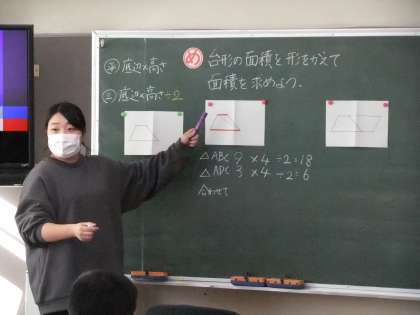 ㊉ 底辺×高さ
㊂ 底辺×高さ÷2
め 台形の面積を形をかえて
面積を求めよう。
△ABC 9 × 4 ÷2=18
△ADC 3 × 4 ÷2=6
合わせて